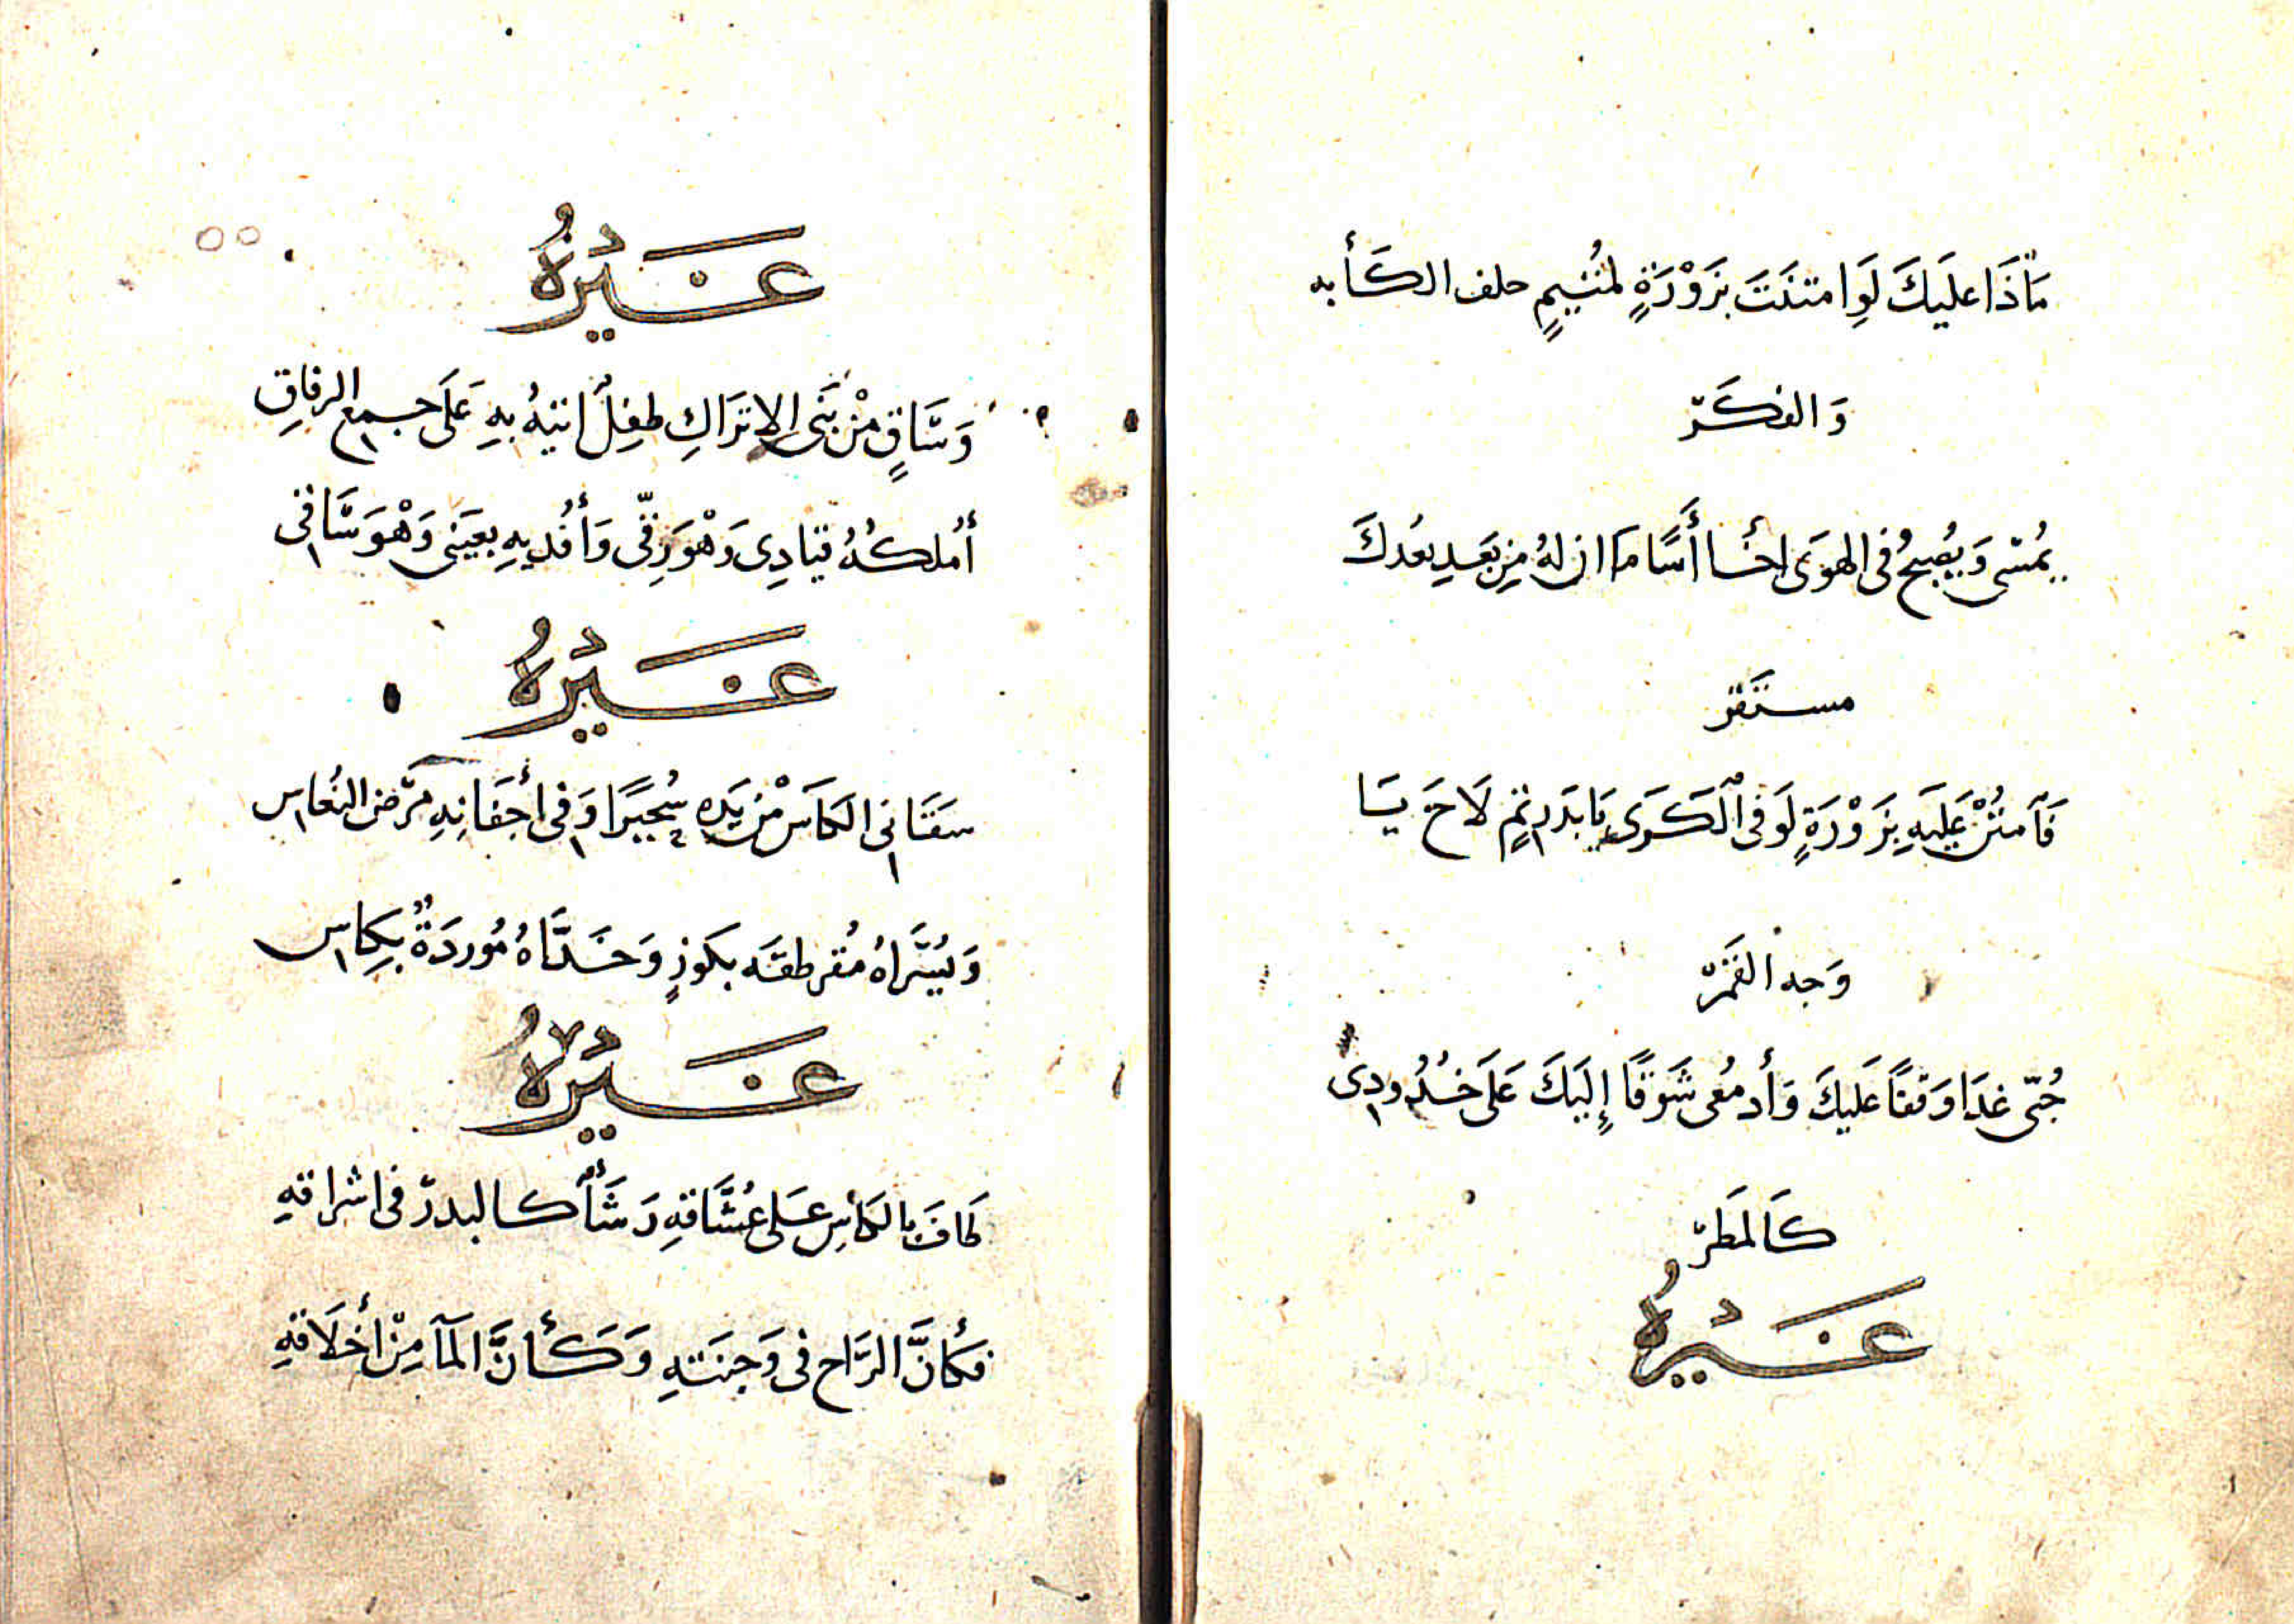 مَاذَا عليَكَ لَوِ امتنَنَتَ بزَوْرَةٍ لمُتيمٍ حلف الكَأبه
وَالفكَرّ
يمُسى وَيصُبحُ فى الهوَى اخا أسًا مَا ان لهُ مِن بَعَدِ بعُدكَ
مستَقَرّ
فَآمنُنْ عَليَهِ بِزَوْرَةٍ لَو فى ٱلكَرَى يَا بدَر تمٍ لَاحَ يَا
وَجه القمَرّ
حُبّى غدَا وَقفًا عَليكَ وَأدمعُى شَوقًا إِليَكَ عَلَى خُدُودِى
كَالمَطَرّ
غَيْرهُ
غَيْرهُ
وَسَاقٍ مْن بَنَى الاترَاكِ طفِلٌ اتيهُ بهِ عَلَى جميع الرفاقِ
أملكُهُ قيَادِى وَهْوَ رِقّى وَأفُديهِ بعيَنى وَهْوَ سَاقى
غَيْرهُ
سَقَانى الكَاسَ مْن يَدِهِ سُحَيرًا وَفى أجفَانِهِ مَرَض النُعاس
وَيُسَراهُ مُقرطقَه بكوَزٍ وَخَدَاهُ مُوردَةٌ بكِاس
غَيْرهُ
طَافَ بالكَاسِ عَلى عُشَاقهِ رَشَأٌ كالبدرّ فى اشراقهِ
فكَأنَّ الرَّاح فى وَجنَتهِ وَكَأنَّ المَآ مِنْ أخلَاقهِ